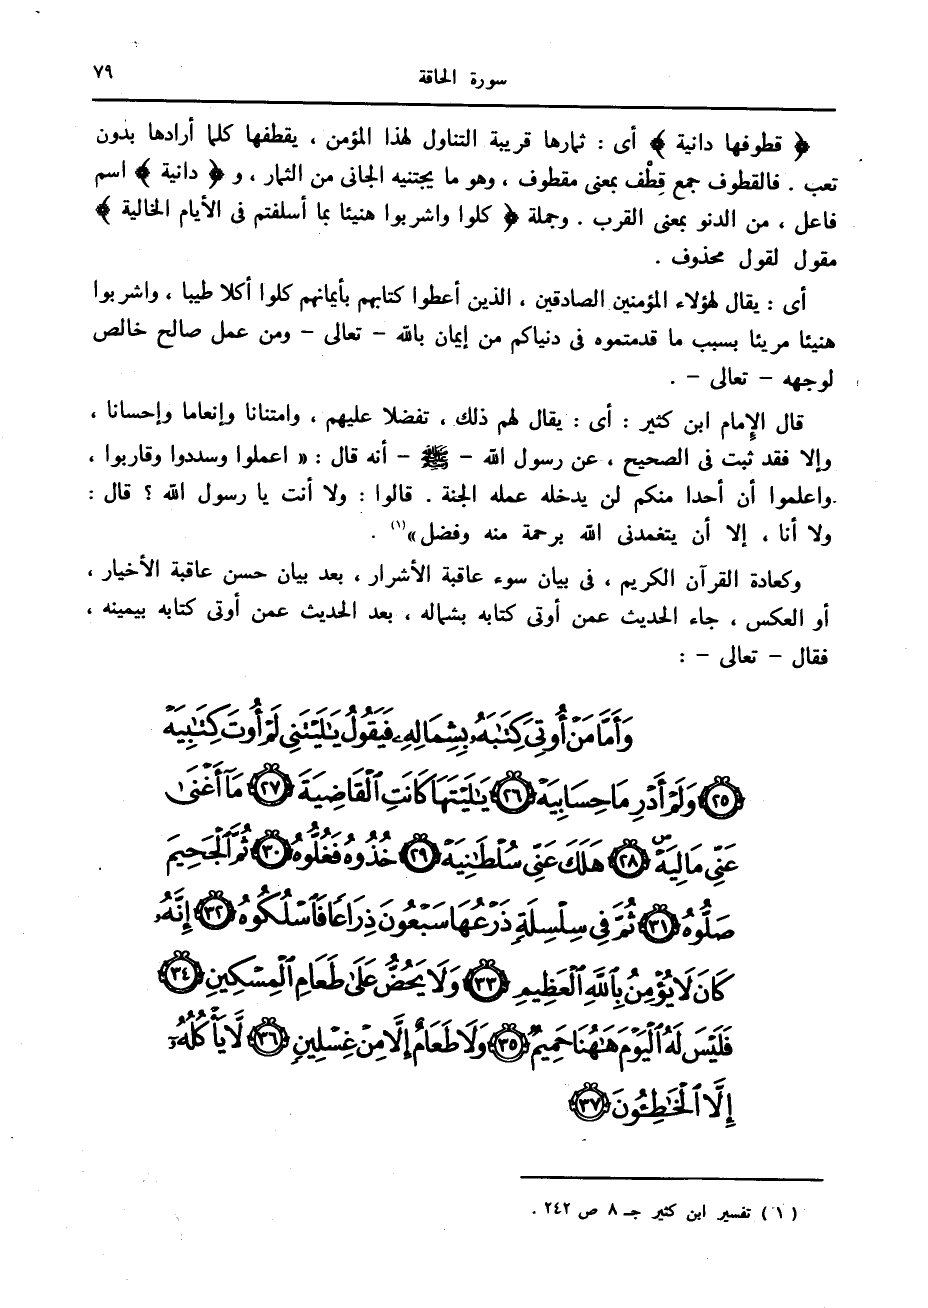 سورة الحاقة ٧٩
﴿ قطوفها دانية ﴾ أى : ثمارها قريبة التناول لهذا المؤمن ، يقطفها كلما أرادها بدون
تعب . فالقطوف جمع قِطْف بمعنى مقطوف ، وهو ما يجتنيه الجانى من الثمار ، و ﴿ دانية ﴾ اسم
فاعل ، من الدنو بمعنى القرب . وجملة ﴿ كلوا واشربوا هنيئا بما أسلفتم فى الأيام الخالية ﴾
مقول لقول محذوف .
أى : يقال لهؤلاء المؤمنين الصادقين ، الذين أعطوا كتابهم بأيمانهم كلوا أكلا طيبا ، واشربوا
هنيئا مريئا بسبب ما قدمتموه فى دنياكم من إيمان بالله – تعالى – ومن عمل صالح خالص
لوجهه – تعالى – .
قال الإمام ابن كثير : أى : يقال لهم ذلك ، تفضلا عليهم ، وامتنانا وإنعاما وإحسانا ،
وإلا فقد ثبت فى الصحيح ، عن رسول الله – ﷺ – أنه قال : « اعملوا وسددوا وقاربوا ،
واعلموا أن أحدا منكم لن يدخله عمله الجنة . قالوا : ولا أنت يا رسول الله ؟ قال :
ولا أنا ، إلا أن يتغمدنى الله برحمة منه وفضل»(١) .
وكعادة القرآن الكريم ، فى بيان سوء عاقبة الأشرار ، بعد بيان حسن عاقبة الأخيار ،
أو العكس ، جاء الحديث عمن أوتى كتابه بشماله ، بعد الحديث عمن أوتى كتابه بيمينه ،
فقال – تعالى – :
وَأَمَّا مَنْ أُوتِيَ كِتَٰبَهُۥ بِشِمَالِهِۦ فَيَقُولُ يَٰلَيْتَنِي لَمْ أُوتَ كِتَٰبِيَهْ
﴿٢٥﴾ وَلَمْ أَدْرِ مَا حِسَابِيَهْ ﴿٢٦﴾ يَٰلَيْتَهَا كَانَتِ ٱلْقَاضِيَةَ ﴿٢٧﴾ مَآ أَغْنَىٰ
عَنِّي مَالِيَهْ ۜ ﴿٢٨﴾ هَلَكَ عَنِّي سُلْطَٰنِيَهْ ﴿٢٩﴾ خُذُوهُ فَغُلُّوهُ ﴿٣٠﴾ ثُمَّ ٱلْجَحِيمَ
صَلُّوهُ ﴿٣١﴾ ثُمَّ فِي سِلْسِلَةٍ ذَرْعُهَا سَبْعُونَ ذِرَاعًا فَٱسْلُكُوهُ ﴿٣٢﴾ إِنَّهُۥ
كَانَ لَا يُؤْمِنُ بِٱللَّهِ ٱلْعَظِيمِ ﴿٣٣﴾ وَلَا يَحُضُّ عَلَىٰ طَعَامِ ٱلْمِسْكِينِ ﴿٣٤﴾
فَلَيْسَ لَهُ ٱلْيَوْمَ هَٰهُنَا حَمِيمٌ ﴿٣٥﴾ وَلَا طَعَامٌ إِلَّا مِنْ غِسْلِينٍ ﴿٣٦﴾ لَّا يَأْكُلُهُۥٓ
إِلَّا ٱلْخَٰطِـُٔونَ ﴿٣٧﴾
( ١ ) تفسير ابن كثير جـ ٨ ص ٢٤٢ .